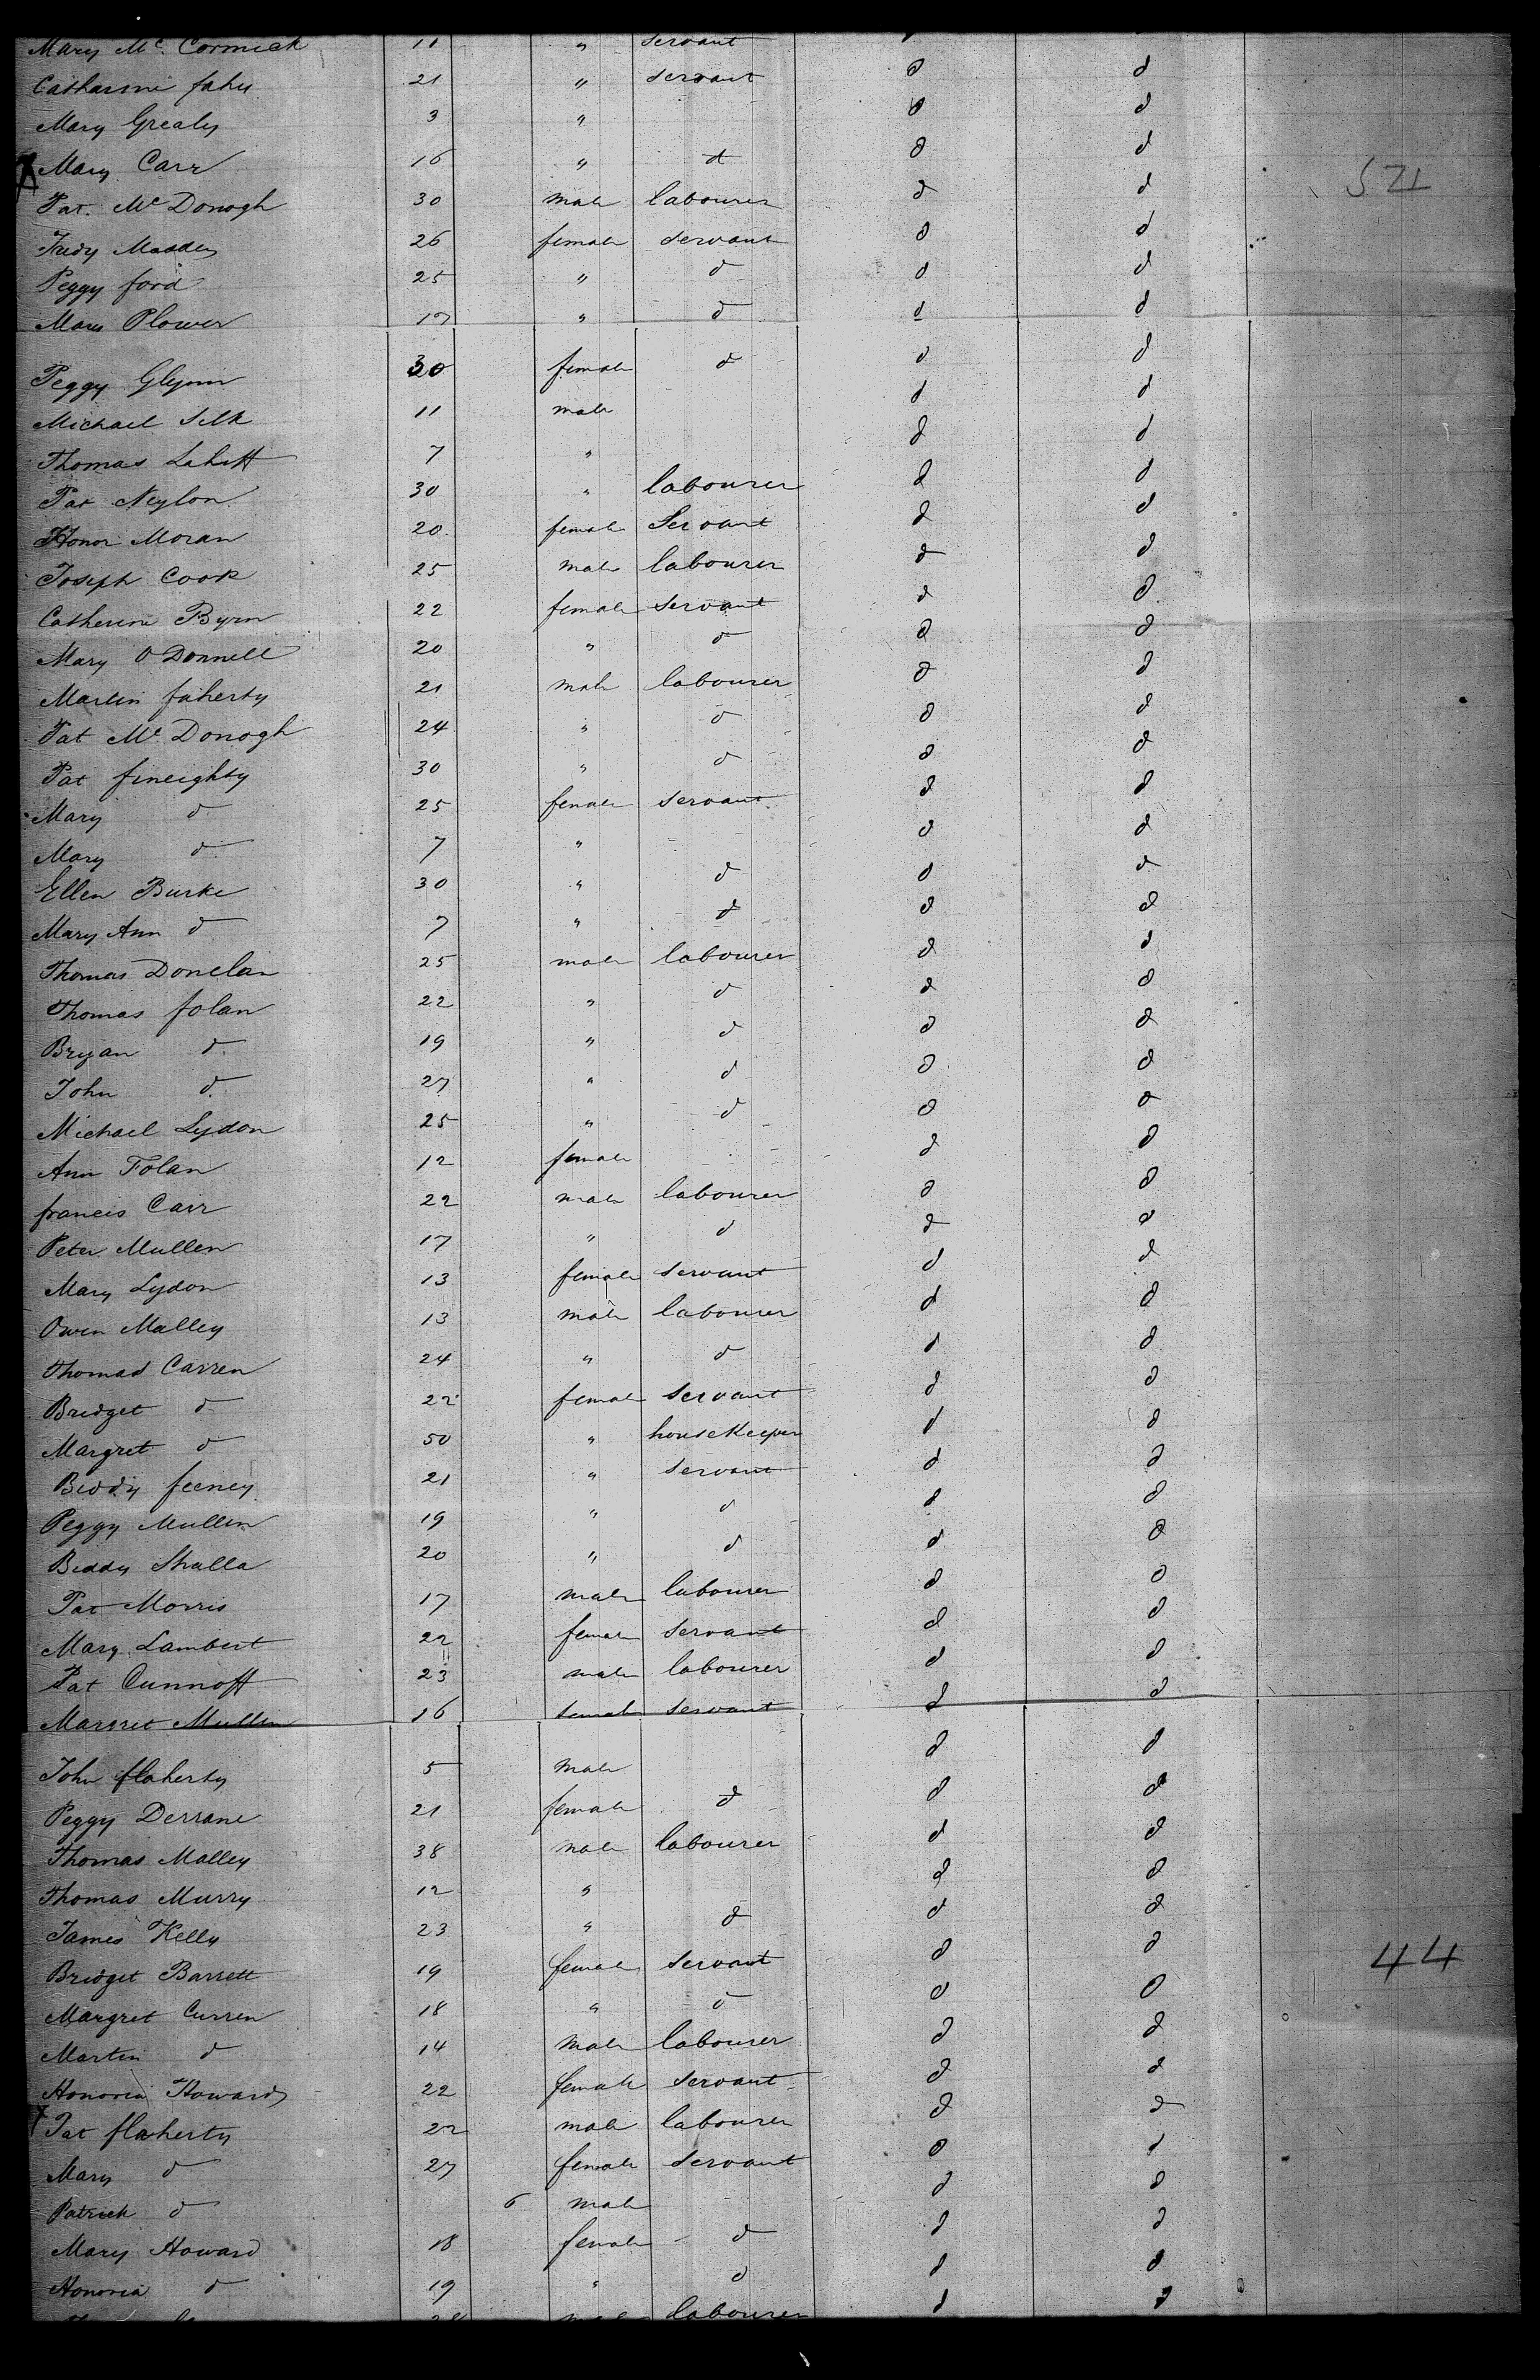 Mary Mc. Cormick 11 " servant d
Catharine fahy 21 " servant d d
Mary Grealy 3 " d d
Mary Carr 16 " d d d
Pat. Mc Donogh 30 male labourer d d
Madden 26 female servant d d
Peggy ford 25 " d d d
Mary Plower 17 " d d d
521
Peggy Glynn 30 female d d d
Michael Silk 11 male d d
Thomas Lahiff 7 " d d
Pat Neylon 30 " labourer d d
Honor Moran 20 female Servant d d
Joseph Cook 25 male labourer d d
Catherine Byrn 22 female servant d d
Mary O Donnell 20 " d d d
Martin faherty 21 male labourer d d
Pat Mc. Donogh 24 " d d d
Pat fineighty 30 " d d d
Mary d 25 female servant d d
Mary d 7 " d d
Ellen Burke 30 " d d d
Mary Ann d 7 " d d d
Thomas Donelan 25 male labourer d d
Thomas folan 22 " d d d
Bryan d 19 " d d d
John d. 27 " d d d
Michael Lydon 25 " d d d
Ann Folan 12 female d d
francis Carr 22 male labourer d d
Peter Mullen 17 " d d d
Mary Lydon 13 female servant d d
Owen Malley 13 male labourer d d
Thomas Carren 24 " d d d
Bridget d 22 female servant d d
Margret d 50 " houseKeeper d d
Biddy feeney 21 " servant d d
Peggy Mullen 19 " d d d
Biddy Shalla 20 " d d d
Pat Morris 17 male labourer d d
Mary Lambert 22 female servant d d
Pat Cunnoff 23 male labourer d d
Margret Mullen 16 female servant d d
John flaherty 5 male d d
Peggy Derrane 21 female d d d
Thomas Malley 38 male labourer d d
Thomas Murry 12 " d d
James Kelly 23 " d d d
Bridget Barrett 19 female servant d d
44
Margret Curren 18 " d d d
Martin d 14 male labourer d d
Honoria Howard 22 female servant d d
Pat flaherty 22 male labourer d d
Mary d 27 female servant d d
Patrick d 6 male d d
Mary Howard 18 female d d d
Honoria d 19 " d d d
labourer d d